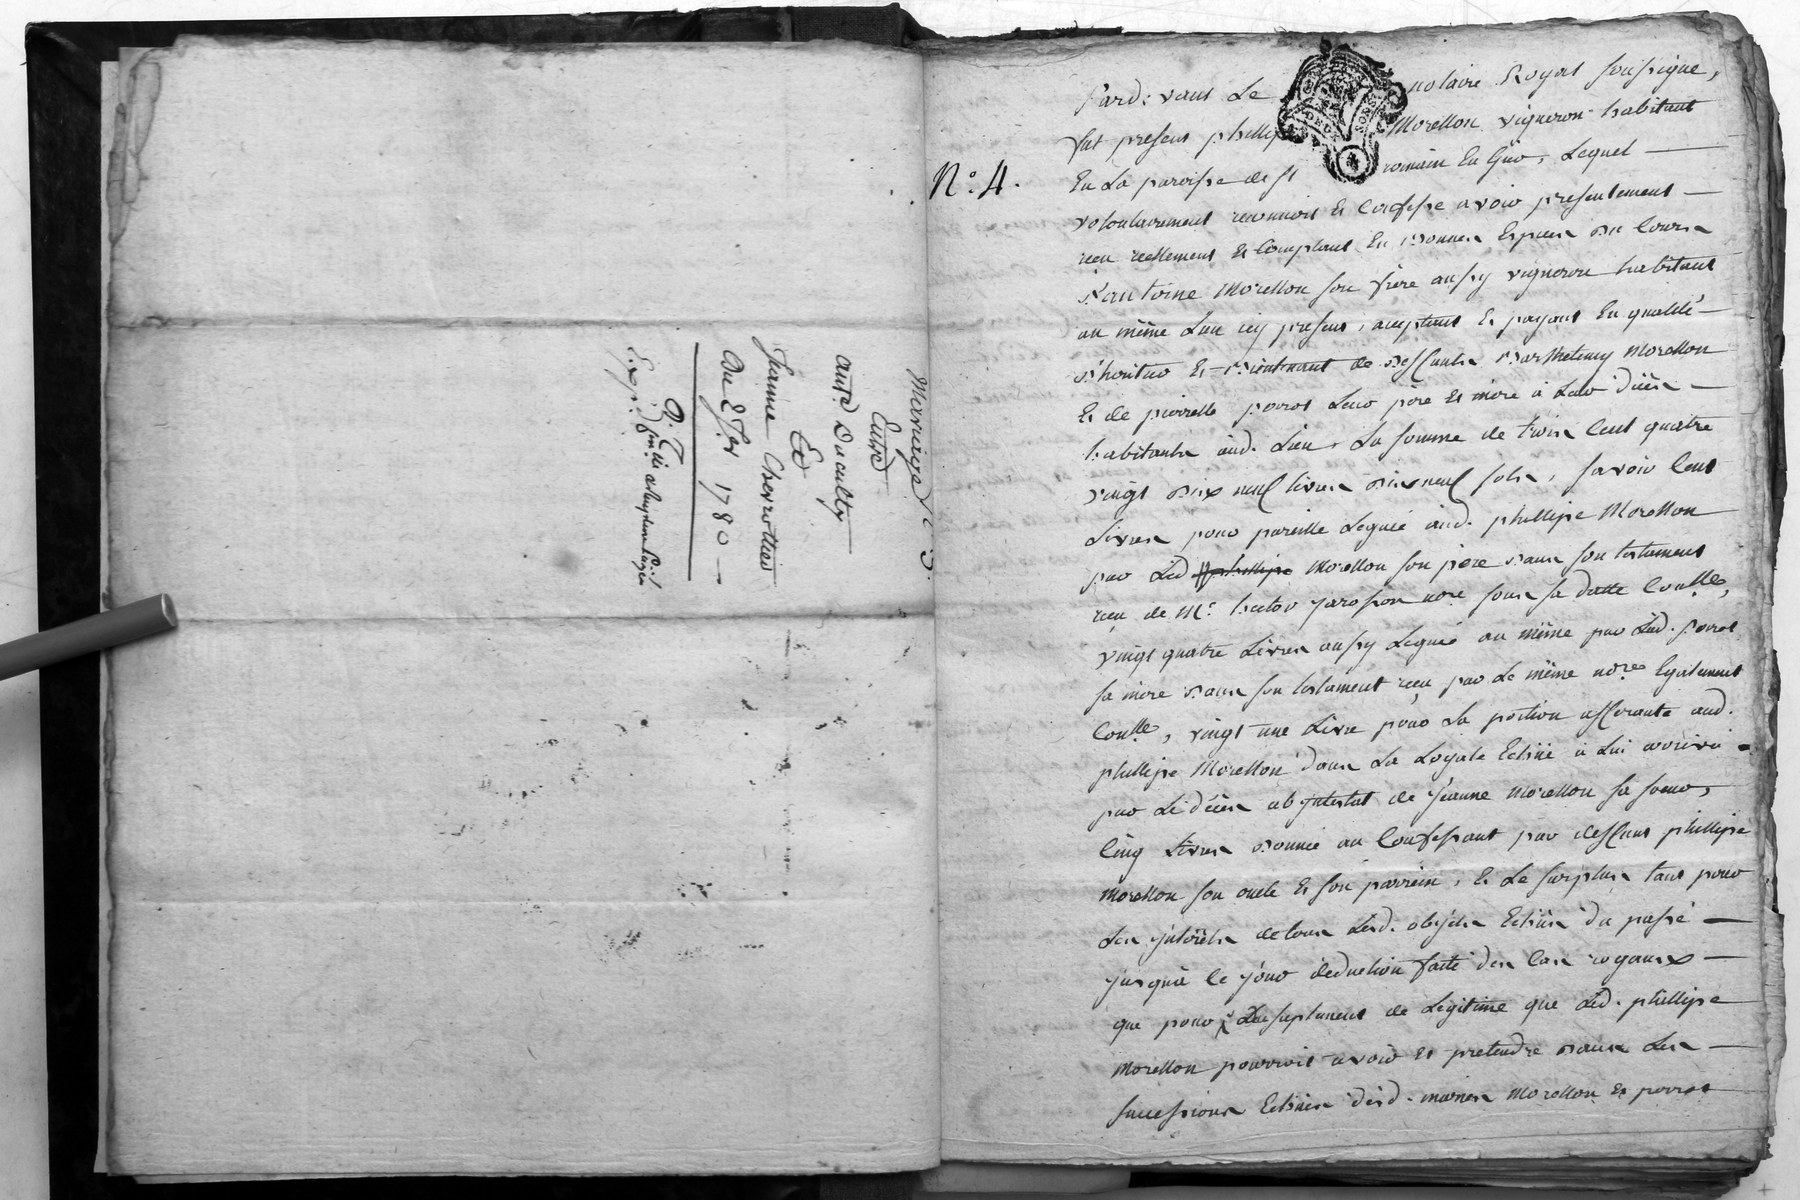 Mariage
Entre
ant.e Ducultÿ
Et
Jeanne Cherrottier
Du 2 f.er 1780
N.o 4.
Pard: vant Le notaire Royal soussigné,
fut present phillip Morellon vigneron habitant
En La paroisse de st romain En Gier, Lequel
volontairement reconnoit Et Confesse avoir presentement
reçu reellement Et Comptant En Bonnes Especes du Cours
d'antoine Morellon son frere aussy vigneron habitant
au même Lieu icy present, acceptant Et payant En qualité
d'heritier Et Bientenant de deffunts Barthelemy Morellon
Et de pierrette poirot Leur pere Et mere à Leur décès
habitants aud. Lieu, La somme de trois Cent quatre
vingt dix neuf livres dix neuf sols, savoir Cent
Livres pour pareille Leguée aud. phillipe Morellon
par Led phillipe Morellon son pere dans son testament
reçu de M.e hector jarosson no.re sous sa datte Con.lle,
vingt quatre Livres aussy Leguée au même par Lad. poirot
sa mere dans son testament reçu par Le même no.re Egalement
Con.lle, vingt une Livre pour La portion afferante aud.
phillipe Morellon dans La Loyale Echüe à Lui arrivée
par Le décès ab jntestat de jeanne Morellon sa soeur,
Cinq Livres donnée au Confessant par deffunt phillipe
Morellon son oncle Et son parrein, Et Le surplus tant pour
Les jnterêts de tous Lesd. objets Echües du passé
jusqu'à Ce jour deduction faite des Cas royaux
que pour Le suplement de Legitime que Led. phillipe
Morellon pourroit avoir Et pretendre dans Les
successions Echües desd. mariés Morellon Et poirot